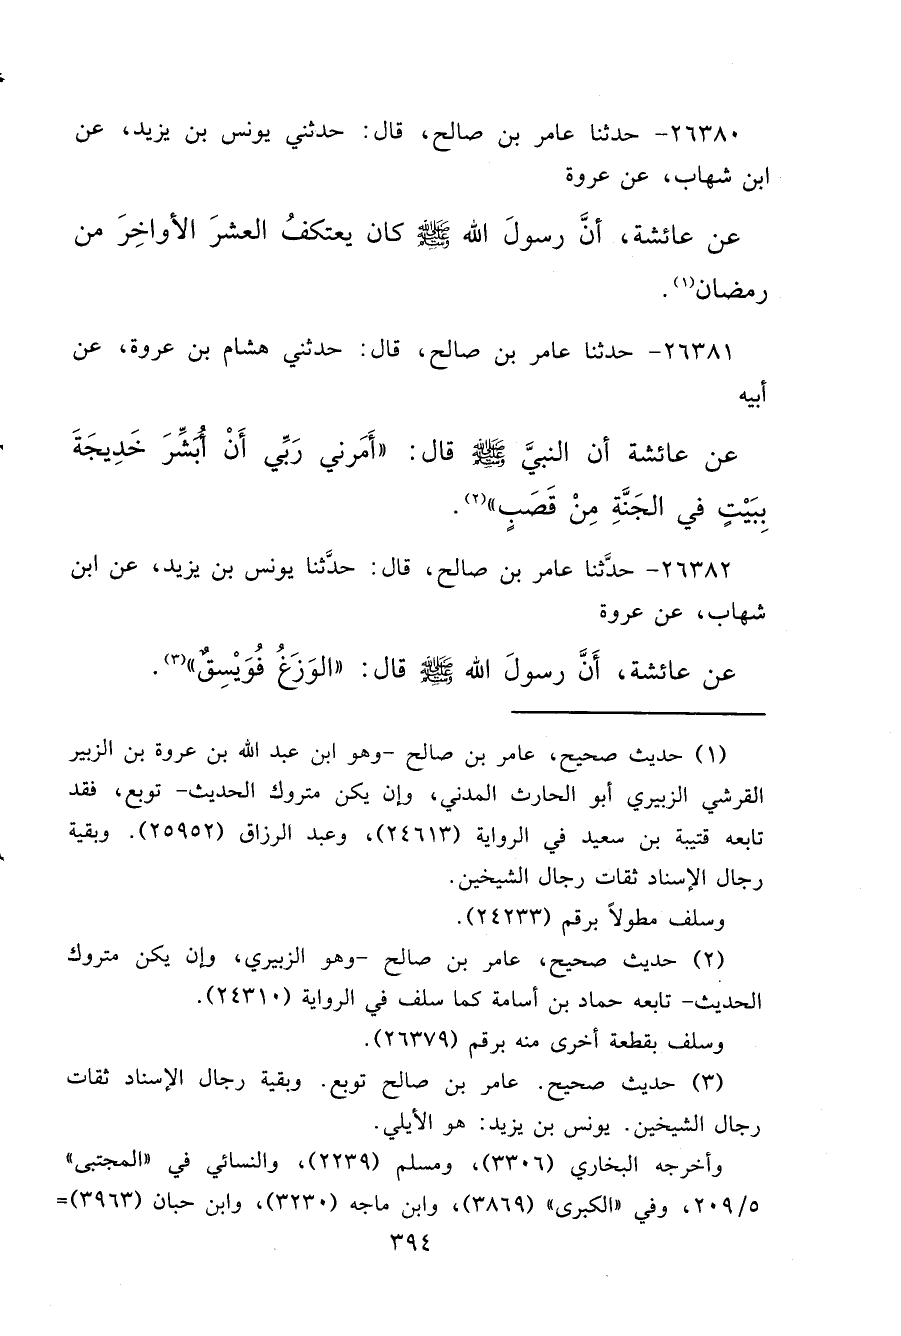 ٢٦٣٨٠- حدثنا عامر بن صالح، قال: حدثني يونس بن يزيد، عن
ابن شهاب، عن عروة
عن عائشة، أنَّ رسولَ الله ﷺ كان يعتكفُ العشرَ الأواخِرَ من
رمضان(١).
٢٦٣٨١- حدثنا عامر بن صالح، قال: حدثني هشام بن عروة، عن
أبيه
عن عائشة أن النبيَّ ﷺ قال: «أَمَرني رَبِّي أَنْ أُبَشِّرَ خَدِيجَةَ
بِبَيْتٍ في الجَنَّةِ مِنْ قَصَبٍ»(٢).
٢٦٣٨٢- حدَّثنا عامر بن صالح، قال: حدَّثنا يونس بن يزيد، عن ابن
شهاب، عن عروة
عن عائشة، أَنَّ رسولَ الله ﷺ قال: «الوَزَغُ فُوَيْسِقٌ»(٣).
(١) حديث صحيح، عامر بن صالح -وهو ابن عبد الله بن عروة بن الزبير
القرشي الزبيري أبو الحارث المدني، وإن يكن متروك الحديث- توبع، فقد
تابعه قتيبة بن سعيد في الرواية (٢٤٦١٣)، وعبد الرزاق (٢٥٩٥٢). وبقية
رجال الإسناد ثقات رجال الشيخين.
وسلف مطولاً برقم (٢٤٢٣٣).
(٢) حديث صحيح، عامر بن صالح -وهو الزبيري، وإن يكن متروك
الحديث- تابعه حماد بن أسامة كما سلف في الرواية (٢٤٣١٠).
وسلف بقطعة أخرى منه برقم (٢٦٣٧٩).
(٣) حديث صحيح. عامر بن صالح توبع. وبقية رجال الإسناد ثقات
رجال الشيخين. يونس بن يزيد: هو الأيلي.
وأخرجه البخاري (٣٣٠٦)، ومسلم (٢٢٣٩)، والنسائي في «المجتبى»
٢٠٩/٥، وفي «الكبرى» (٣٨٦٩)، وابن ماجه (٣٢٣٠)، وابن حبان (٣٩٦٣)=
٣٩٤